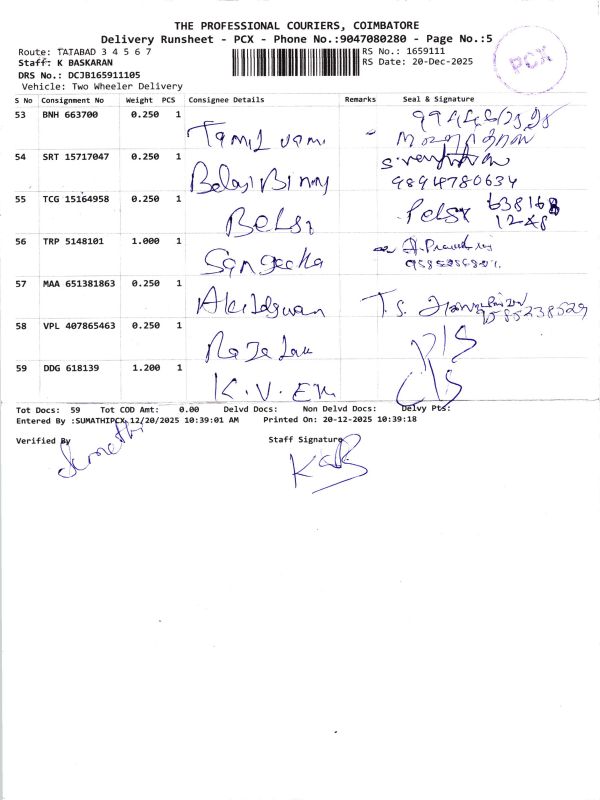 THE PROFESSIONAL COURIERS, COIMBATORE
Delivery Runsheet - PCX - Phone No.:9047080280 - Page No.:5
Route: TATABAD 3 4 5 6 7
RS No.: 1659111
Staff: K BASKARAN
RS Date: 20-Dec-2025
DRS No.: DCJB165911105
Vehicle: Two Wheeler Delivery
PCX
S No Consignment No Weight PCS Consignee Details Remarks Seal & Signature
53 BNH 663700 0.250 1
Tamil vani
54 SRT 15717047 0.250 1
Belasi Binny
9894780634
55 TCG 15164958 0.250 1
Belsi
Pelsi 638168
1248
56 TRP 5148101 1.000 1
Sangeetha
57 MAA 651381863 0.250 1
T.S.
9585238529
58 VPL 407865463 0.250 1
P/S
59 DDG 618139 1.200 1
K.V.EN
C/S
Tot Docs: 59 Tot COD Amt: 0.00 Delvd Docs: Non Delvd Docs: Delvy Pts:
Entered By :SUMATHIPCX 12/20/2025 10:39:01 AM Printed On: 20-12-2025 10:39:18
Verified By Staff Signature
Sumathi